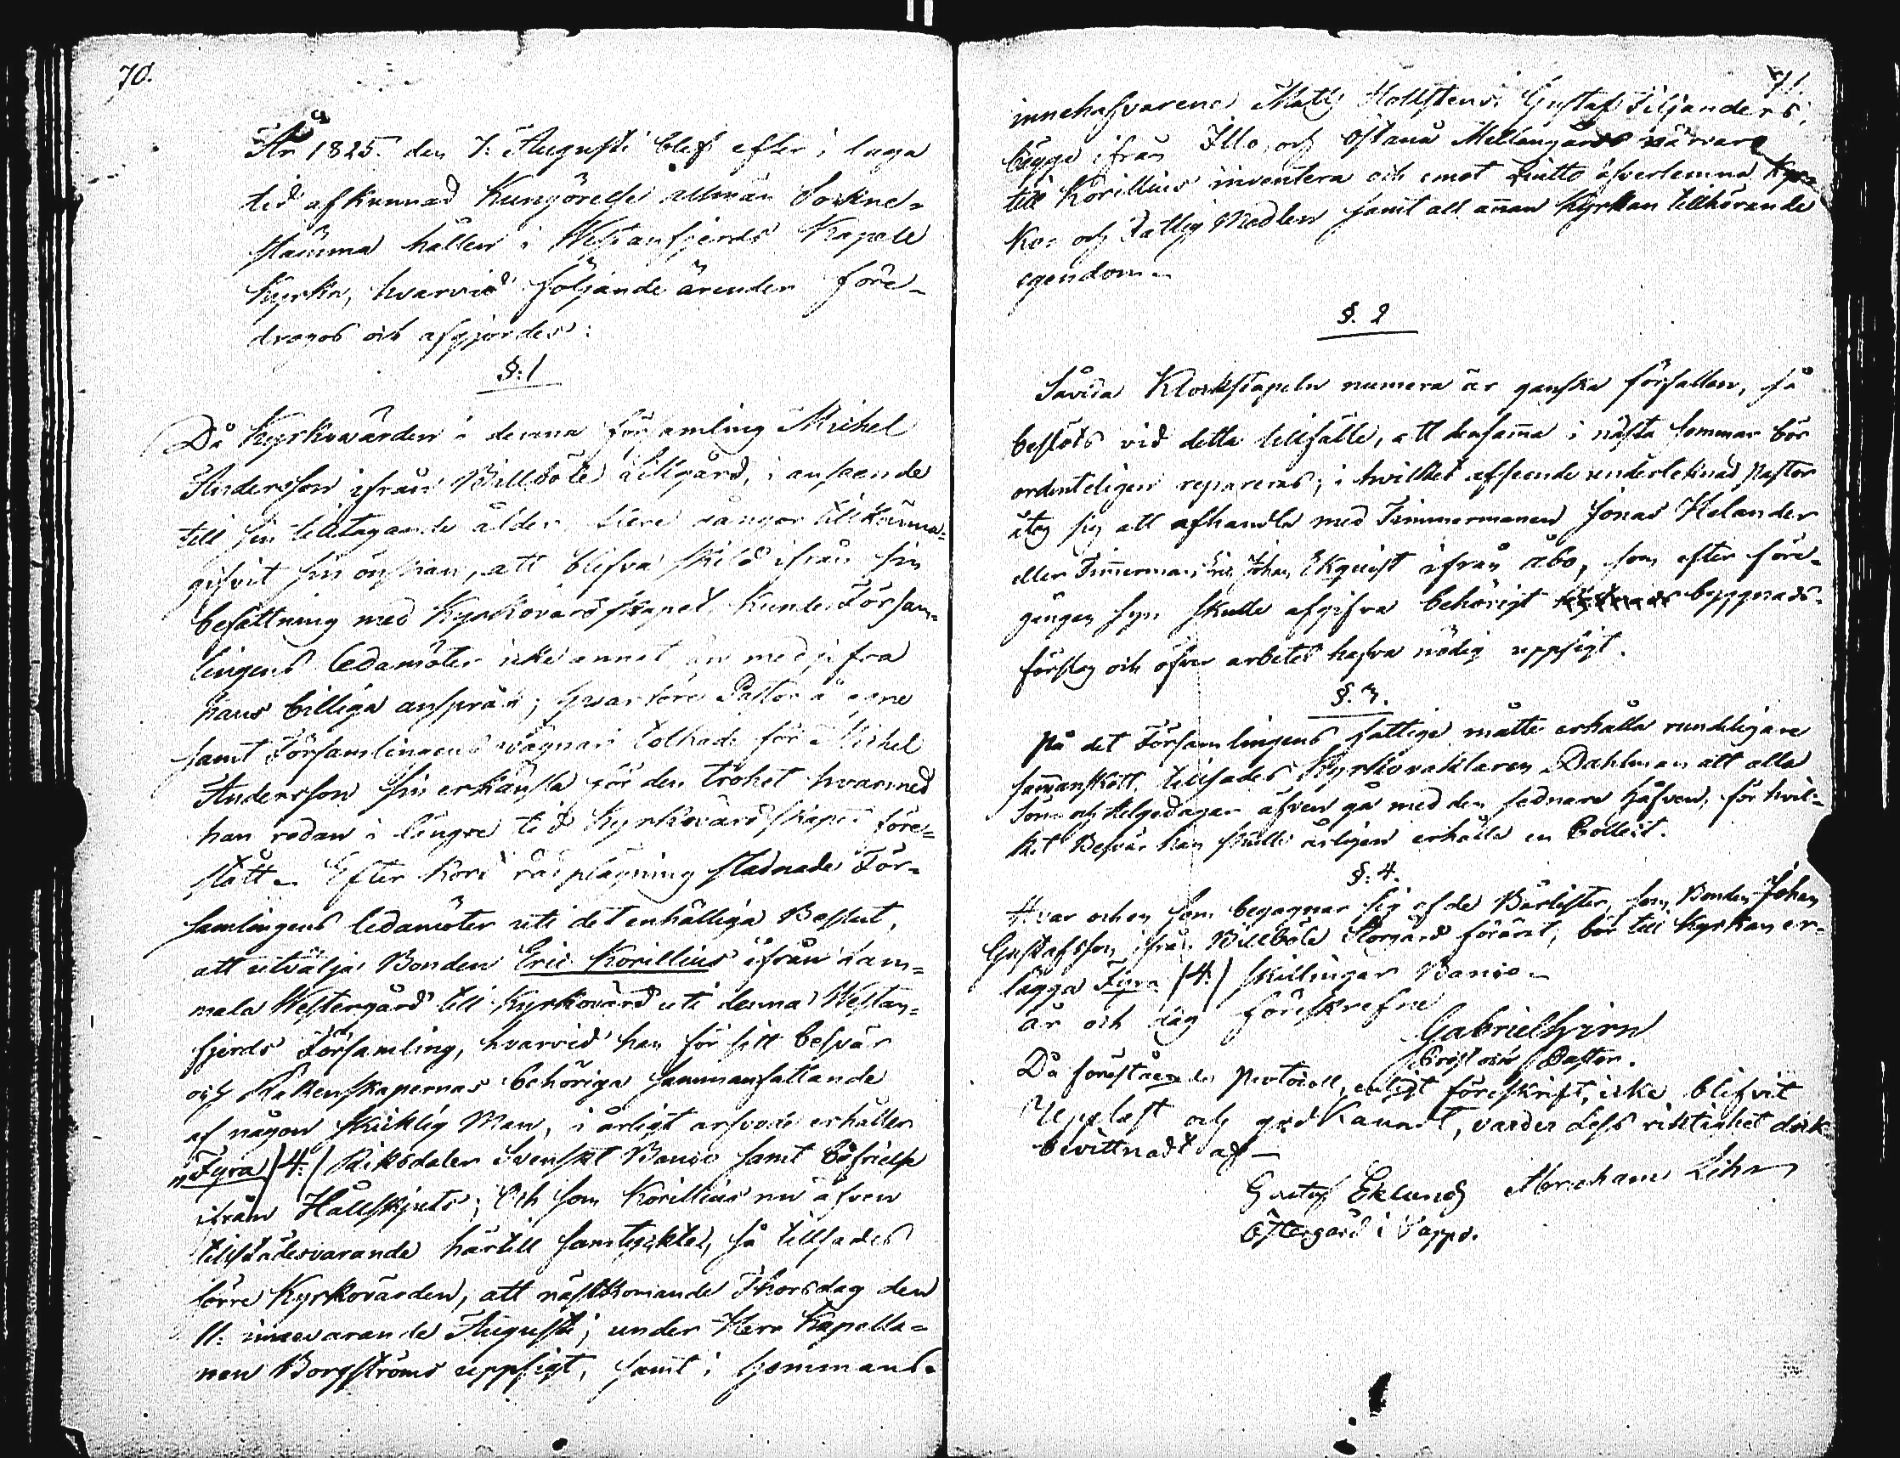 70.
År 1825. den 7. Augusti blef efter i laga
tid afkunnad Kungörelse allmän Sockne-
stämma hållen i Westanfjerds Kapele
Kyrka, hvarvid följande ärender före-
dragos och afgjordes:
§. 1
Då Kyrkovärden i denna församling Michel
Andersson ifrån Billböle Lillgård, i anseende
till sin tilltagande ålder flere gångor tillkänna-
gifvit sin önskan, att blifva skild ifrån sin
befattning med Kyrkovärdskapet, kunde Försam-
lingens ledamöter icke annat än medgifva
hans billiga anspråk; hvarföre Pastor å egne
samt Församlingens vägnar tolkade för Michel
Andersson sin erkänsla för den trohet hvarmed
han redan i längre tid Kyrkovärdskapet före-
stått. Efter kort rådplägning stadnade För-
samlingens ledamöter uti det enhälliga Beslut,
att utvälja Bonden Eric Korillius ifrån Lam-
mala Westergård till Kyrkovärd uti denna Westan-
fjerds Församling, hvarvid han för sitt besvär
och Räkenskapernas behöriga sammanfattande
af någon skicklig Man, i årligt arfvode erhåller
Fyra /4./ Riksdaler Svenskt Banco samt Befrielse
ifrån Hållskjuts; Och som Korillius nu äfven
tillstädesvarande härtill samtyckte, så tillsades
förre Kyrkovärden, att nästkommande Thorsdag den
11. innevarande Augusti, under Herr Kapella-
nen Borgströms uppsigt, samt i Hemmans-
71.
innehafvarene Matts Hollstens, Gustaf Siljanders,
bägge ifrån Illo, och Östanå Mellangårds närvaro
till Korillius inventera och emot Quitto öfverlemna Kyr-
ko- och Fattig Medlen samt all annan Kyrkan tillhörande
egendom.
§. 2
Såvida Klockstapeln numera är ganska förfallen, så
beslöts vid detta tillfälle, att densamma i nästa sommar bör
ordenteligen repareras; i hvilket afseende undertecknad Pastor
åtog sig att afhandla med Timmermannen Jonas Helander
eller Timmerman Eric Johan Ekquist ifrån Åbo, som efter före-
gången syn skulle afgifva behörigt byggnads-
förslag och öfver arbetet hafva nödig uppsigt.
§. 3.
På det Församlingens fattige måtte erhålla rundeligare
sammanskott, tillsades Kyrkovaktaren Dahlman att alla
Sön- och Helgedagar äfven gå med den sednare Håfven, för hvil-
ket Besvär han skulle årligen erhålla en Collect.
§. 4.
Hvar och en som begagnar sig af de Bårlister, som Bonden Johan
Gustafsson ifrån Billböle Storgård förärt, bör till Kyrkan er-
lägga Fyra /4./ skillingar Banco.
År och dag föreskrefne
Gabriel Hirn
Prost och Pastor.
Då förestående Protocoll, enligt föreskrift, icke blifvit
Uppläst och godkännt, varder dess riktighet dock
bevittnadt af
Gustaf Eklund Abraham Lihr
Östergård i Sappo.